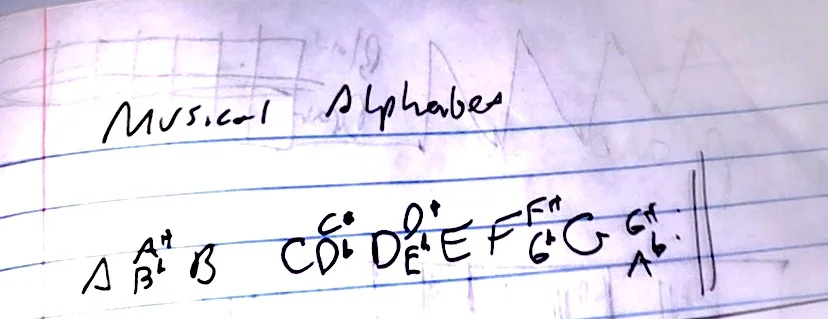 Musical Alphabet
A A# Bb B C C# Db D D# Eb E F F# Gb G G# Ab :||